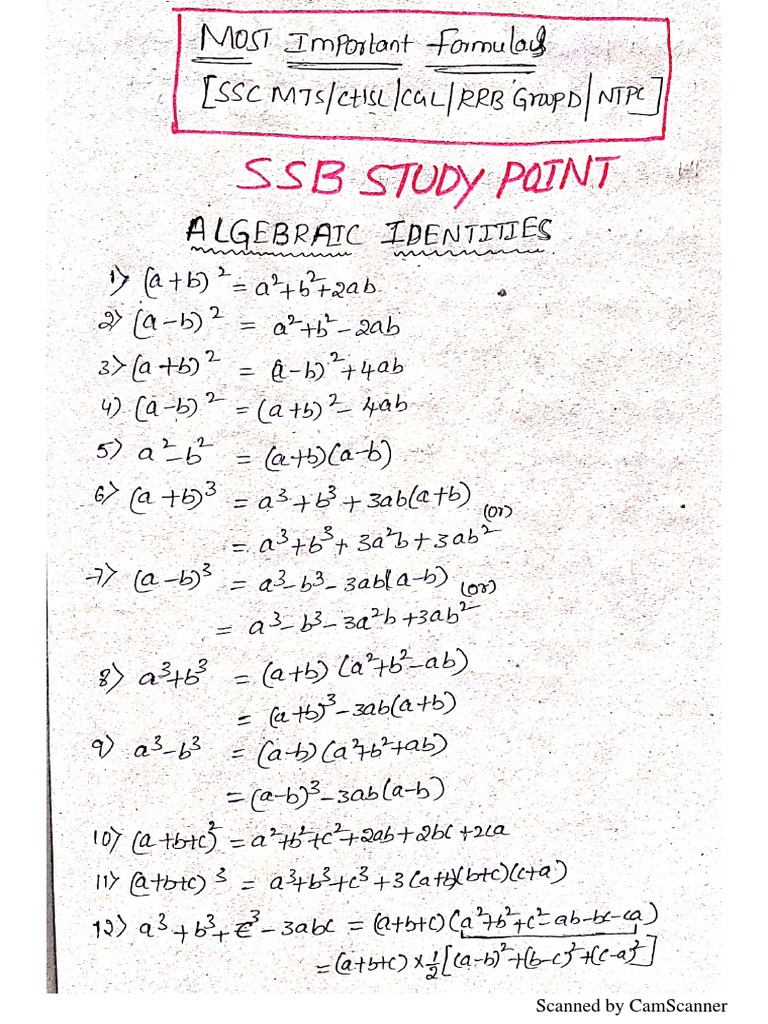 MOST Important Formulas
[SSC MTS/CHSL/CGL/RRB GroupD/NTPC]
SSB STUDY POINT
ALGEBRAIC IDENTITIES
1) (a+b)² = a²+b²+2ab
2) (a-b)² = a²+b²-2ab
3) (a+b)² = (a-b)²+4ab
4) (a-b)² = (a+b)²-4ab
5) a²-b² = (a+b)(a-b)
6) (a+b)³ = a³+b³+3ab(a+b) (or)
= a³+b³+3a²b+3ab²
7) (a-b)³ = a³-b³-3ab(a-b) (or)
= a³-b³-3a²b+3ab²
8) a³+b³ = (a+b)(a²+b²-ab)
= (a+b)³-3ab(a+b)
9) a³-b³ = (a-b)(a²+b²+ab)
= (a-b)³-3ab(a-b)
10) (a+b+c)² = a²+b²+c²+2ab+2bc+2ca
11) (a+b+c)³ = a³+b³+c³+3(a+b)(b+c)(c+a)
12) a³+b³+c³-3abc = (a+b+c)(a²+b²+c²-ab-bc-ca)
= (a+b+c)×½[(a-b)²+(b-c)²+(c-a)²]
Scanned by CamScanner